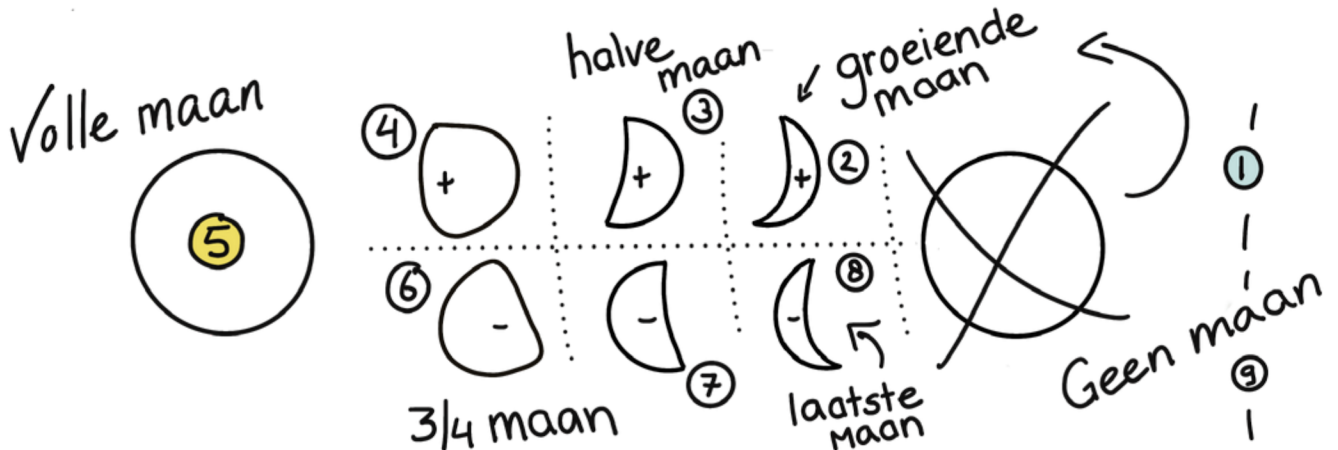 Volle maan
5
4
+
halve
maan
3
+
groeiende
maan
2
+
1
6
-
3/4 maan
-
7
8
-
laatste
maan
Geen maan
9